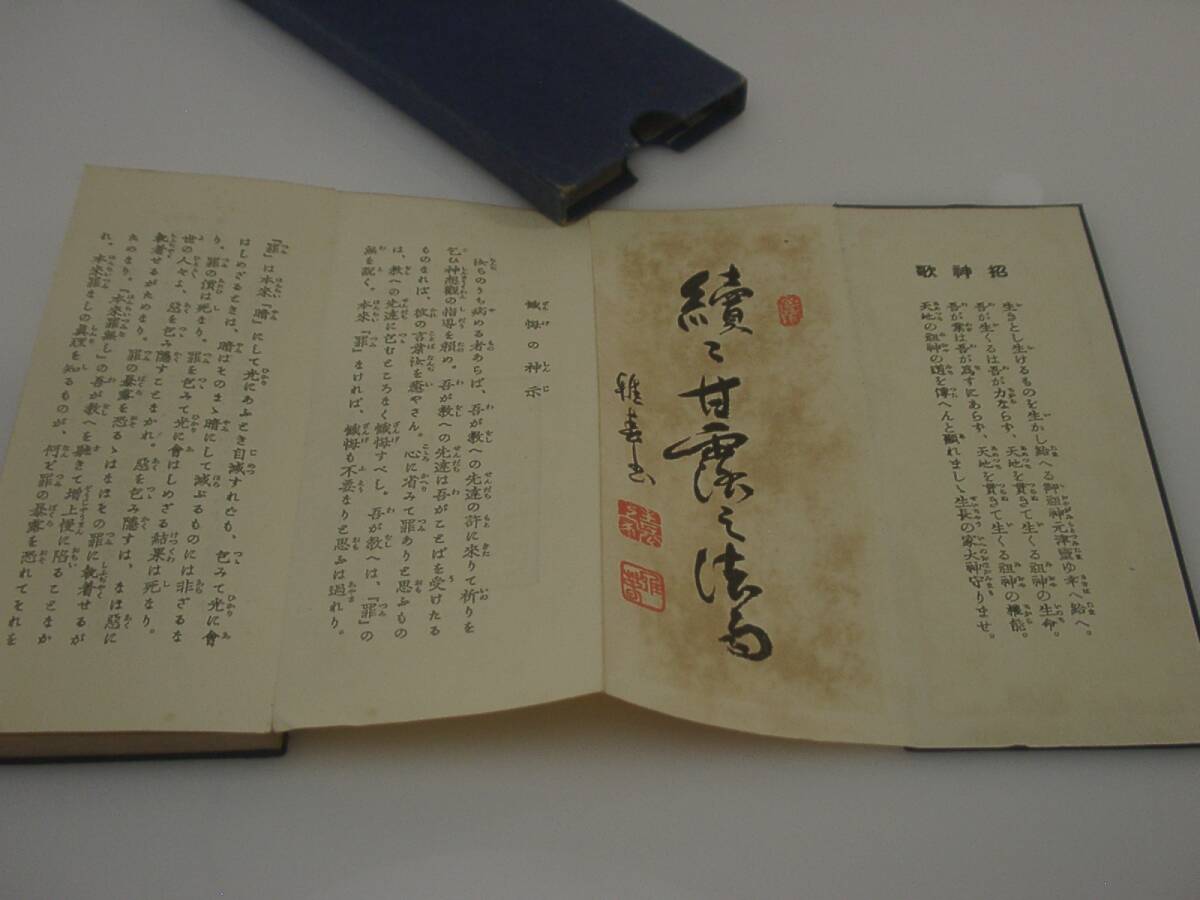 招神歌
生きとし生けるものを生かし給へる御祖神元津靈ゆ幸へ給へ。
吾が生くるは吾が力ならず、天地を貫きて生くる祖神の生命。
吾が業は吾が爲すにあらず、天地を貫きて生くる祖神の權能。
天地の祖神の道を傳へんと顯れましゝ生長の家大神守りませ。
續々甘露之法雨
雅春書
懺悔の神示
汝らのうち病める者あらば、吾が教への先達の許に來りて祈りを
乞ひ神想觀の指導を頼め。吾が教への先達は吾がことばを受けたる
ものなれば、彼の言葉汝を癒やさん。心に省みて罪ありと思ふもの
は、教への先達に包むところなく懺悔すべし。吾が教へは、『罪』の
無を説く、本來『罪』なければ、懺悔も不要なりと思ふは過れり。
『罪』は本來『暗』にして光にあふとき自滅すれども、包みて光に會
はしめざるときは、暗はそのまゝ暗にして滅ぶるものには非ざるな
り。罪の價は死なり。罪を包みて光に會はしめざる結果は死なり。
世の人々よ、惡を包み隱すことなかれ。惡を包み隱すは、なほ惡に
執着せるがためなり。罪の暴露を恐るゝはなほその罪に執着せるが
ためなり。『本來罪無し』の吾が教へを聽きて増上慢に陷ることなか
れ、本來罪なしの眞理を知るものが、何ど罪の暴露を恐れてそれを